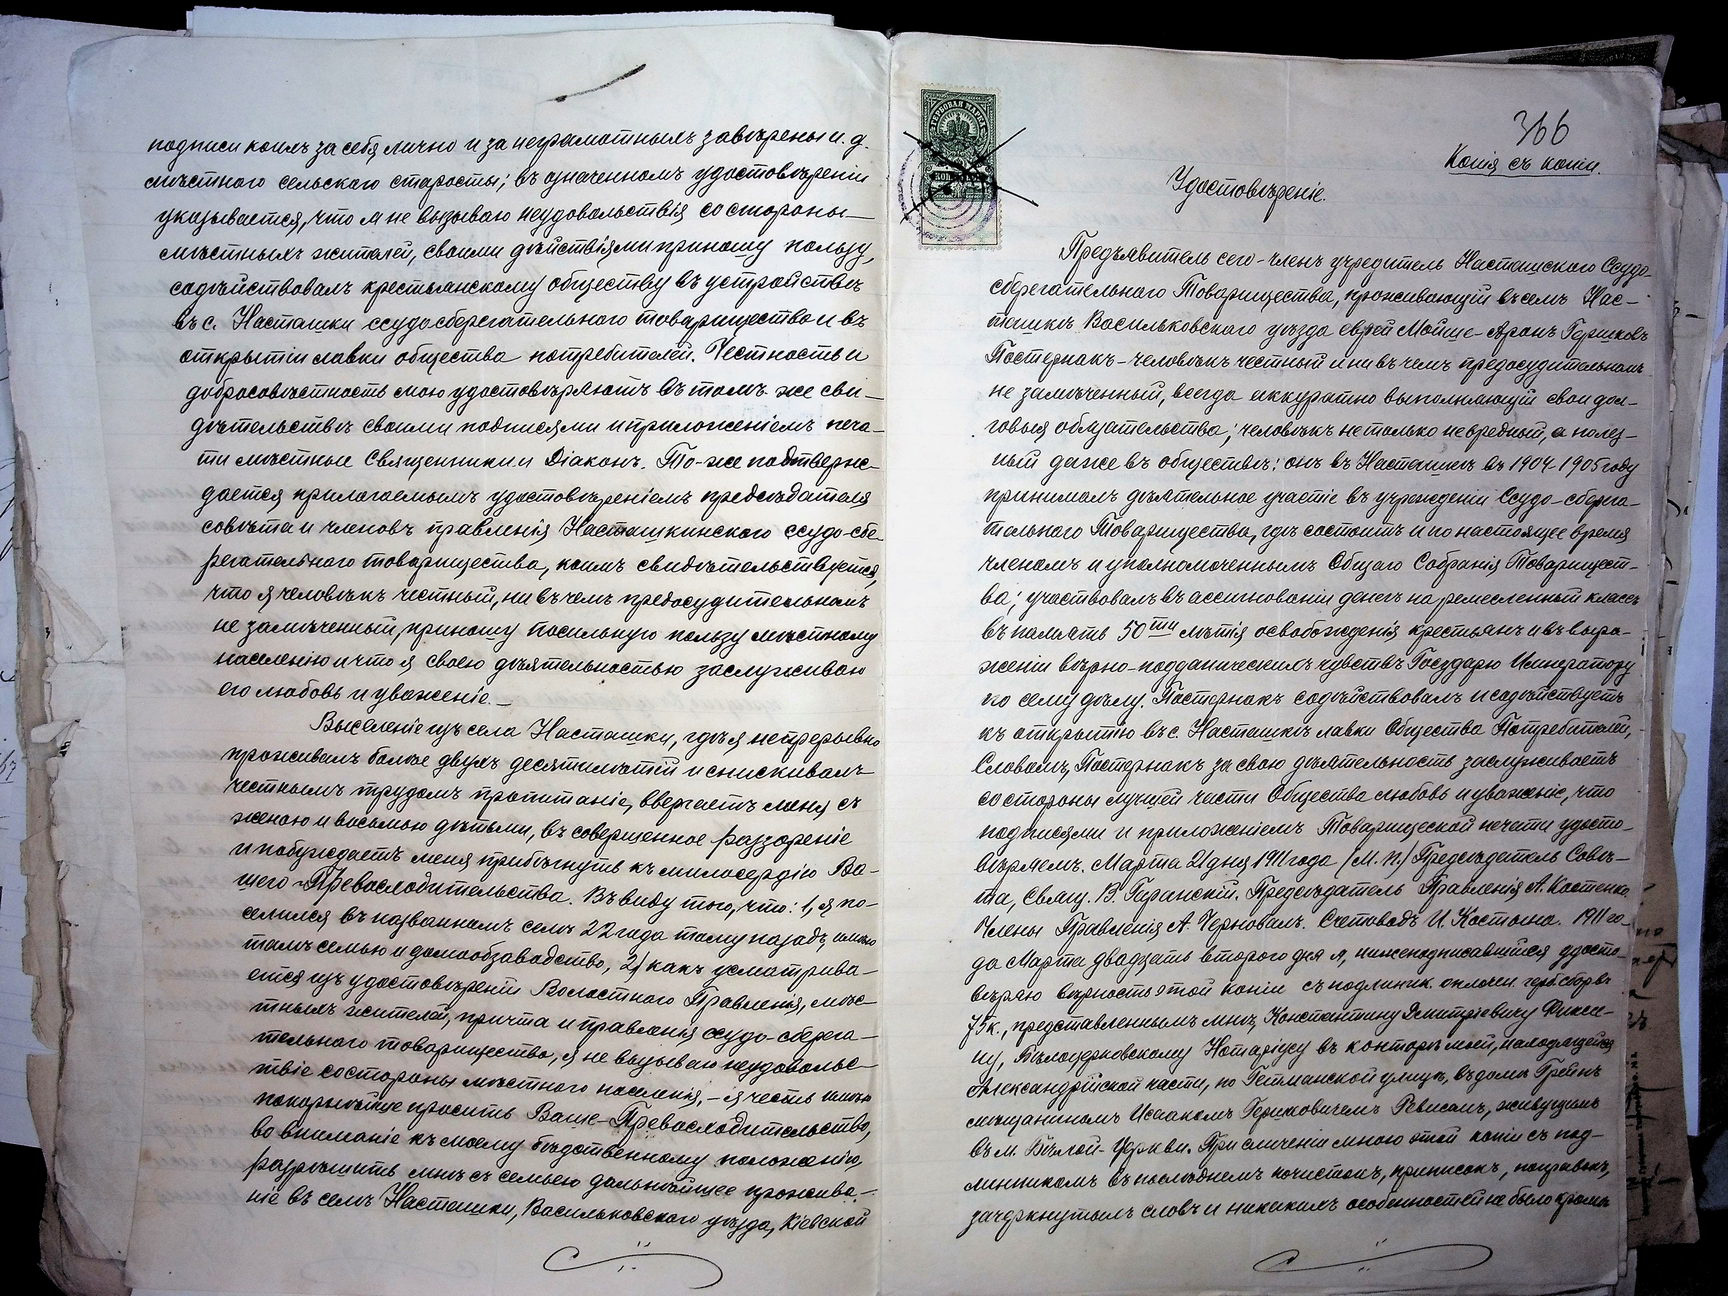 подписи коихъ за себя лично и за неграмотныхъ завѣрены и. д.
мѣстнаго сельскаго старосты; въ означенномъ удостовѣреніи
указывается, что я не вызываю неудовольствія со стороны
мѣстныхъ жителей, своими дѣйствіями приношу пользу,
содѣйствовалъ крестьянскому обществу въ устройствѣ
въ с. Насташки ссудосберегательного товарищества и въ
открытіи лавки общества потребителей. Честность и
добросовѣстность мою удостовѣряютъ въ томъ же сви-
дѣтельствѣ своими подписями и приложеніемъ печа-
ти мѣстные Священники и Діаконъ. То-же подтверж-
дается прилагаемымъ удостовѣреніемъ предсѣдателя
совѣта и членовъ правленія Насташкинского ссудо-сбе-
регательного товарищества, коимъ свидѣтельствуется,
что я человѣкъ честный, ни въ чемъ предосудительномъ
не замѣченный, приношу посильную пользу мѣстному
населенію и что я своею дѣятельностью заслуживаю
его любовь и уваженіе.
Выселеніе изъ села Насташки, гдѣ я непрерывно
проживалъ болѣе двухъ десятилѣтій и снискивалъ
честнымъ трудомъ пропитаніе, ввергаетъ меня съ
женою и восьмью дѣтьми, въ совершенное раззореніе
и побуждаетъ меня прибѣгнуть къ милосердію Ва-
шего Превосходительства. Въ виду того, что: 1, я по-
селился въ названномъ селѣ 22 года тому назадъ, имѣю
тамъ семью и домообзаводство, 2/ какъ усматрива-
ется изъ удостовѣреній Волостного Правленія, мѣс-
тныхъ жителей, причта и правленія ссудо-сберега-
тельного товарищества, я не вызываю неудовольс-
твіе со стороны мѣстного населенія, - я честь имѣю
покорнѣйше просить Ваше-Превосходительство,
во вниманіе къ моему бѣдственному положенію,
разрѣшить мнѣ съ семьею дальнѣйшее прожива-
ніе въ селѣ Насташки, Васильковского уѣзда, Кіевской
ГЕРБОВАЯ МАРКА
366
Копія съ копіи.
Удостовѣреніе.
Предъявитель сего - членъ учредитель Насташского Ссудо-
сберегательного Товарищества, проживающій въ селѣ Нас-
ташкѣ Васильковского уѣзда еврей Мойше-Аронъ Гершковъ
Пастернакъ - человѣкъ честный и ни въ чемъ предосудительномъ
не замѣченный, всегда аккуратно выполняющій свои дол-
говыя обязательства; человѣкъ не только не вредный, а полез-
ный даже въ обществѣ: онъ въ Насташкѣ въ 1904-1905 году
принималъ дѣятельное участіе въ учрежденіи Ссудо-сберега-
тельного Товарищества, гдѣ состоитъ и по настоящее время
членомъ и уполномоченнымъ Общаго Собранія Товарищест-
ва; участвовалъ въ ассигнованіи денегъ на ремесленный классъ
въ память 50ти лѣтія освобожденія крестьянъ и въ выра-
женіи вѣрно-подданическихъ чувствъ Государю Императору
по сему дѣлу. Пастернакъ содѣйствовалъ и содѣйствуетъ
къ открытію въ с. Насташкѣ лавки Общества Потребителей,
Словомъ, Пастернакъ за свою дѣятельность заслуживаетъ
со стороны лучшей части Общества любовь и уваженіе, что
подписями и приложеніемъ Товарищеской печати удосто-
вѣряемъ. Марта 21 дня 1911 года (М. п.) Предсѣдатель Совѣ-
та, Свящ. В. Предсѣдатель Правленія А. Костенко.
Члены Правленія А. Счетоводъ И. Костына. 1911 го-
да Марта двадцать второго дня я, нижеподписавшійся удосто-
вѣряю вѣрность этой копіи съ подлинник. оплочен герб. сборъ
75 к., представленнымъ мнѣ, Константину Дмитріевичу
Бѣлоцерковскому Нотаріусу въ конторѣ моей, находящейся
Александрійской части, по Гетманской улицѣ, въ домѣ
мѣщаниномъ Исаакомъ Гершковичемъ живущимъ
въ м. Бѣлой-Церкви. При сличеніи мною этой копіи съ под-
линникомъ въ послѣднемъ почистокъ, приписокъ, поправокъ,
зачеркнутыхъ словъ и никакихъ особенностей не было кромѣ